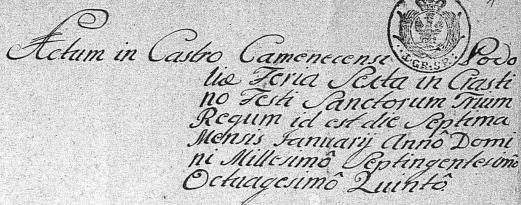 Actum in Castro Camenecensi Podo
liæ Feria Sexta in Crasti
no Festi Sanctorum Trium
Regum id est die Septima
Mensis Januarij Annô Domi
ni Millesimô Septingentesimô
Octuagesimô Quintô